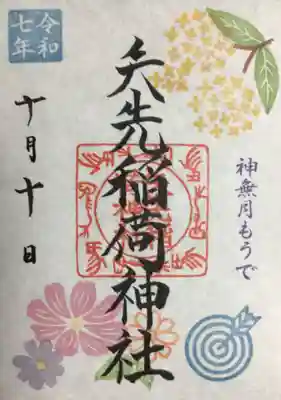 神無月もうで
矢先稲荷神社
令和
七年
十月十日